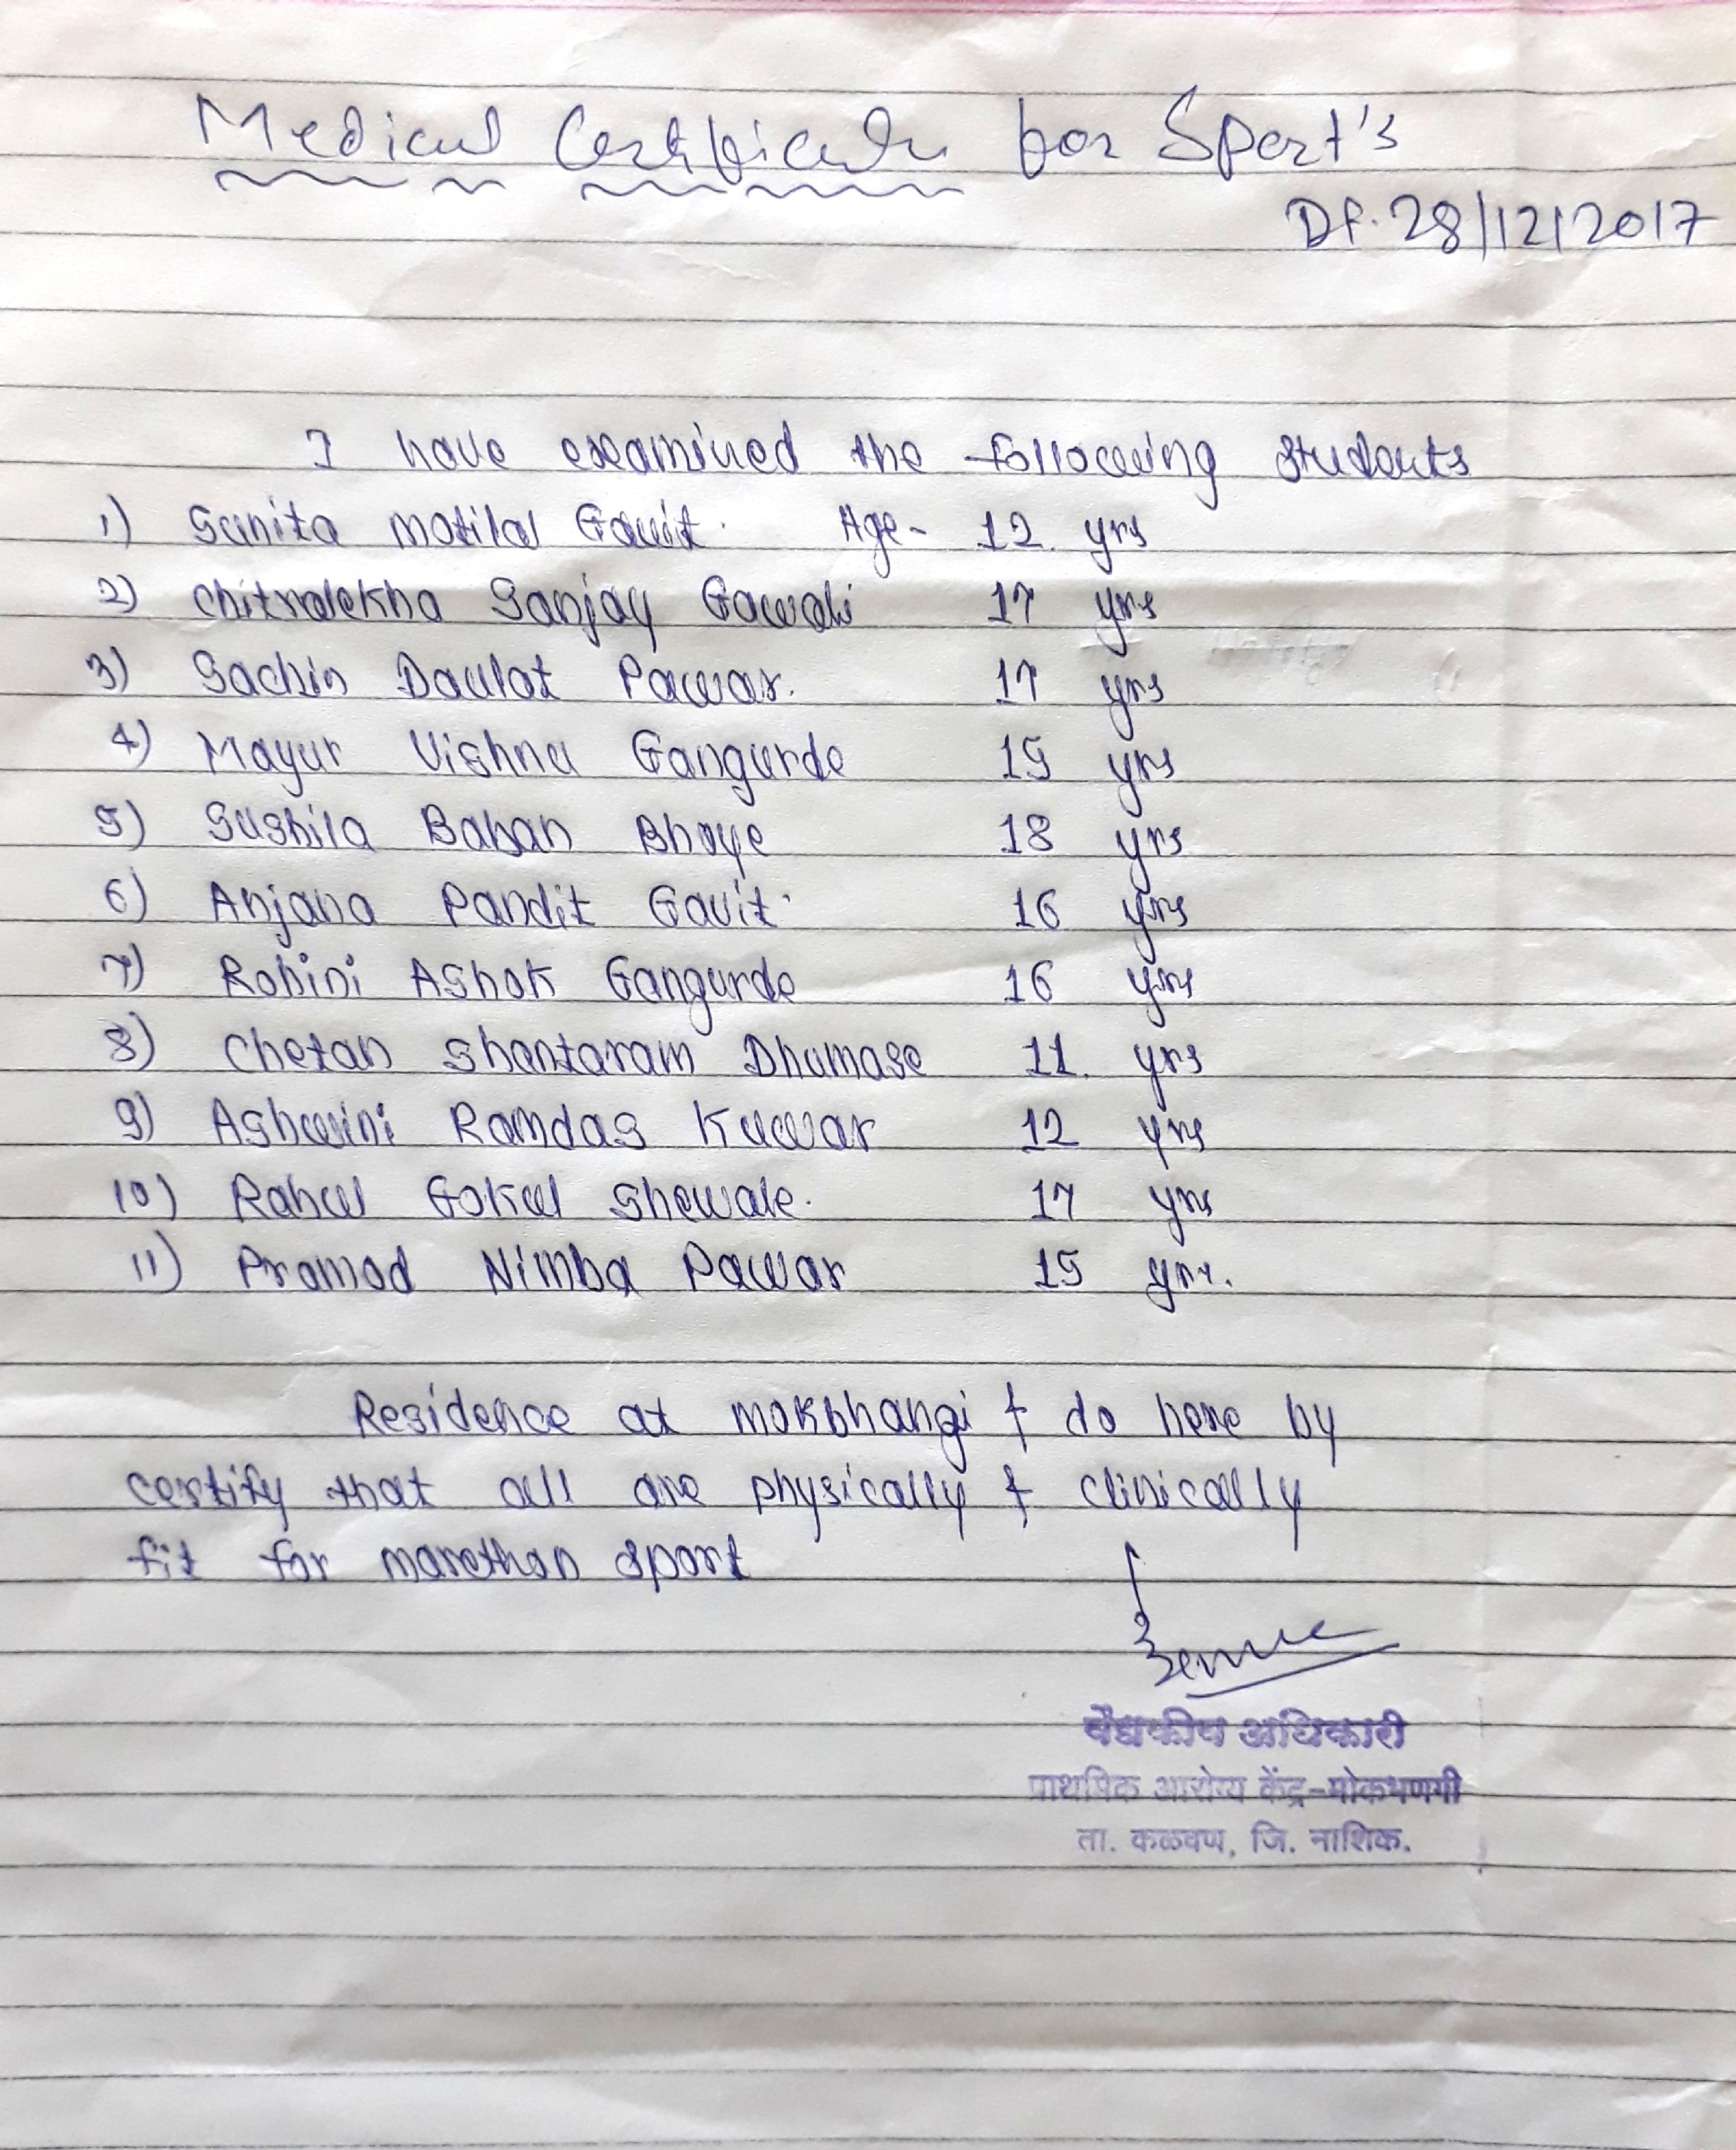 Medical Certificate for Sport's
Dt. 28/12/2017
I have examined the following students
1) Sunita Motilal Gavit. Age- 12. yrs
2) Chitralekha Sanjay Gawali 17 yrs
3) Sachin Daulat Pawar. 17 yrs
4) Mayur Vishnu Gangurde 15 yrs
5) Sushila Baban Bhoye 18 yrs
6) Anjana Pandit Gavit. 16 yrs
7) Rohini Ashok Gangurde 16 yrs
8) Chetan Shantaram Dhumase 11. yrs
9) Ashwini Ramdas Kuwar 12 yrs
10) Rahul Gokul Shewale. 17 yrs
11) Pramod Nimba Pawar 15 yrs.
Residence at mokbhangi & do here by
certify that all are physically & clinically
fit for marethon sport
वैद्यकीय अधिकारी
प्राथमिक आरोग्य केंद्र-मोकभणगी
ता. कळवण, जि. नाशिक.